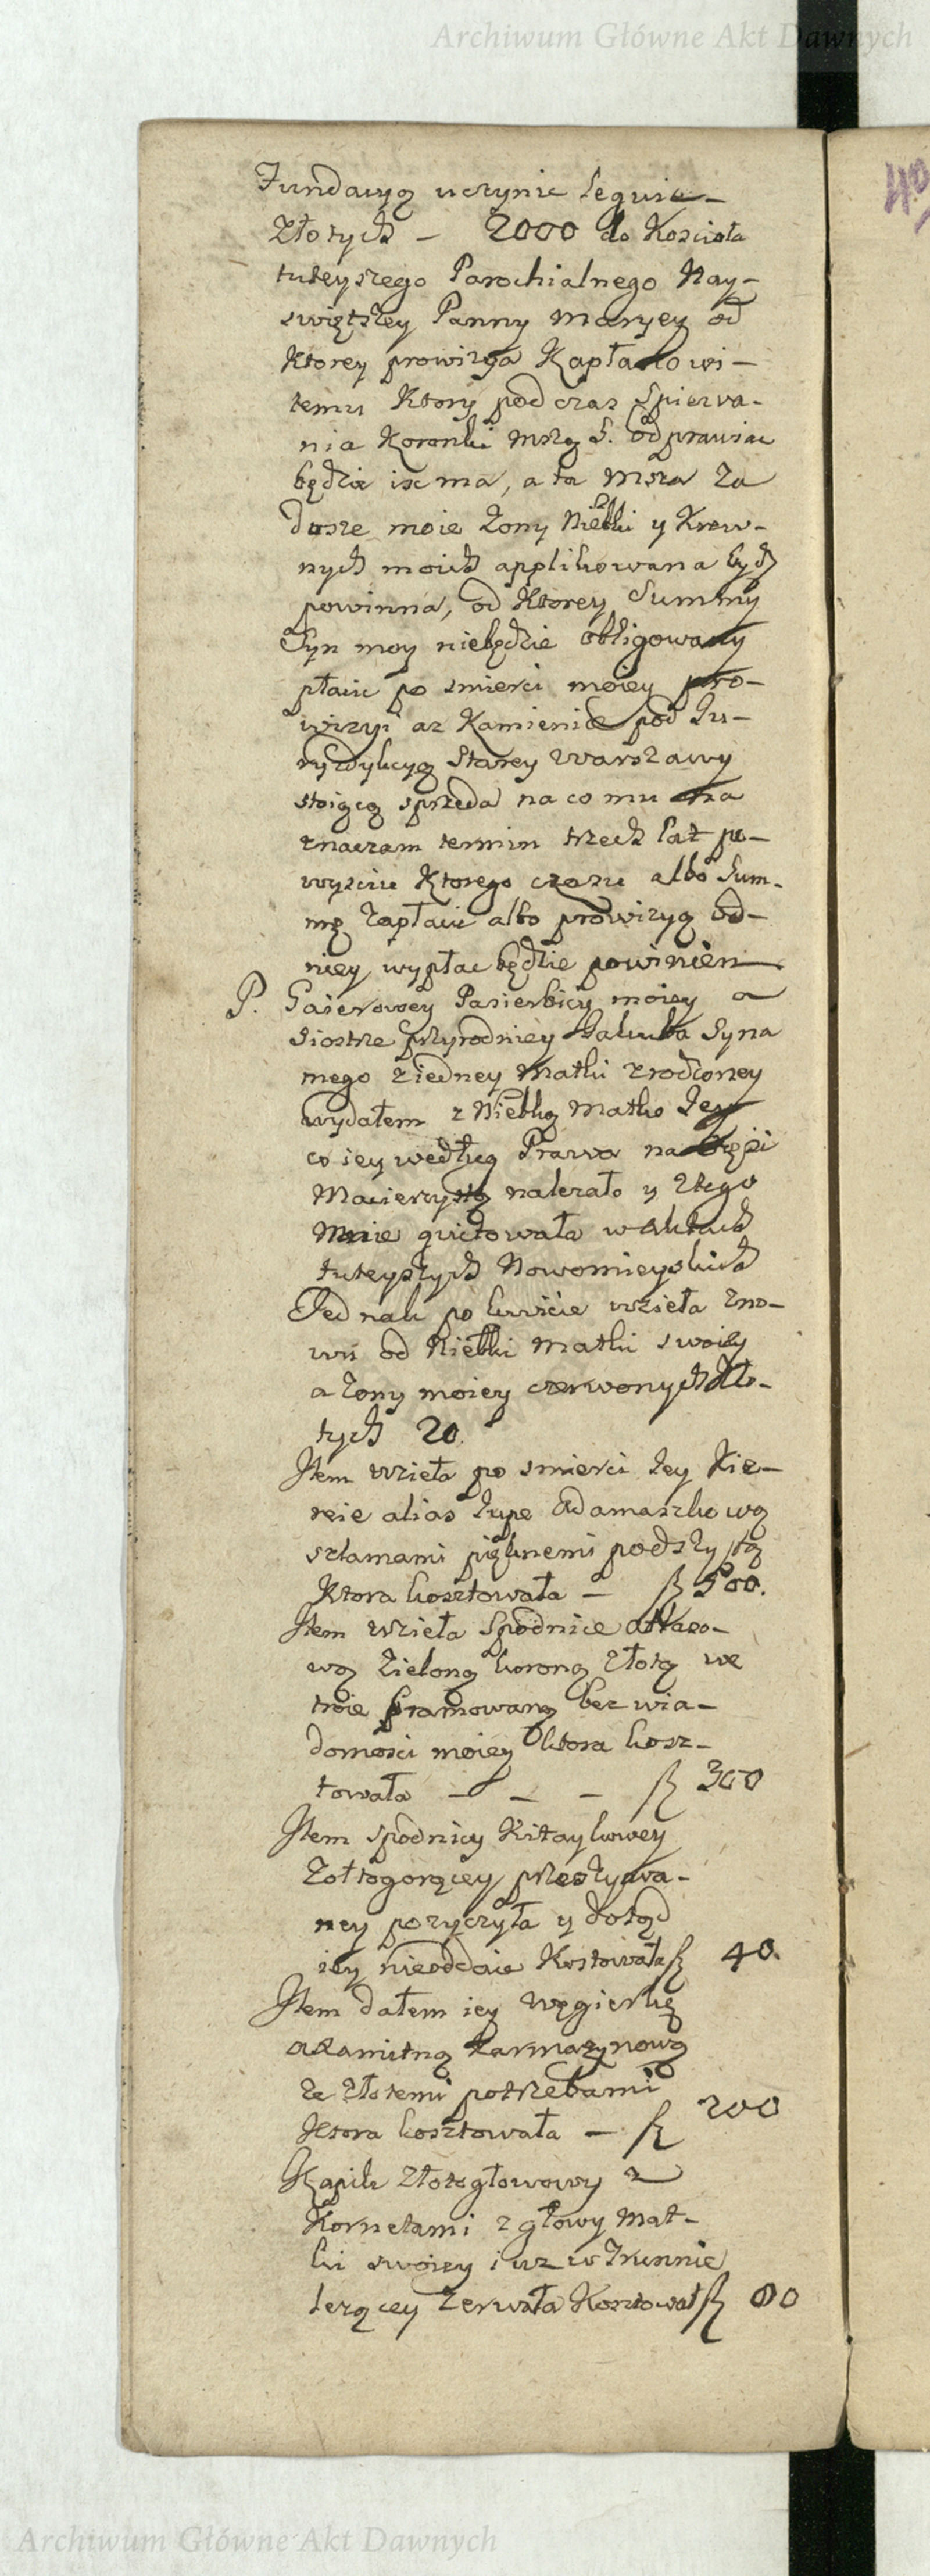 Archiwum Główne Akt Dawnych
Fundacyą uczynic leguie
Złotych – 2000 do Koscioła
tuteyszego Parochialnego Nay-
swiętszey Panny Maryey od
Ktorey prowizya Kapłanowi-
temu Ktory podczas Spiewa-
nia Koronki Mszą S. odprawiac
będzie isc ma, a ta Msza za
dusze moie Zony Niebki y Krew-
nych moich applikowana bydz
powinna, od Ktorey Summy
Syn moy niebędzie obligowany
płacic po smierci moiey pro-
wizyi az Kamienice pod Ju-
ryzdykcyą Starey Warszawy
stoiącą sprzeda na co mu na
znaczam termin trzech lat po-
wysciu Ktorego czasu albo Sum-
mę zapłacic albo prowizyą od-
niey wypłac będzie powinien
P. Pasierbicy moiey a
Siostrze przyrodniey Jakuba Syna
mego z iedney Matki zrodzoney
wydałem z Niebką Matką Jey
co iey według Prawa na
Macierzystą nalezało y ztego
mnie quietowała w Aktach
tuteyszych Nowomieyskich
Jednak po kwicie wzieła zno-
wu od Niebki Matki swoiey
a Zony moiey czerwonych Zło-
tych 20.
Item wzieła po smierci Jey Kie-
reie alias Jupe Adamaszkową
szlamami pięknemi podszytą
Ktora kosztowała – 500.
Item wzieła Spodnice Atłaso-
wą zieloną koroną złotą we
troie bramowaną bez wia-
domosci moiey ktora kosz-
towała – – – 300
Item spodnicy Kitaykowey
Zołtogorącey przeszywa-
ney pozyczyła y dotąd
iey nieoddaie Kostowała 40.
Item dałem iey Węgierkę
axamitną karmazynową
ze złotemi potrzebami
Ktora kosztowała – 200
Kapik złotogłowowy z
Kornetami z głowy Mat-
ki swoiey iuz w Trunnie
lezącey zerwała Kosztował 80
Archiwum Główne Akt Dawnych